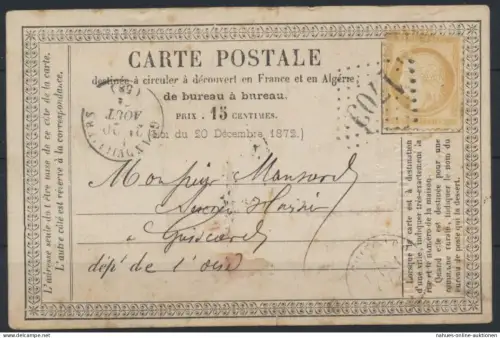 CARTE POSTALE
destinée à circuler à découvert en France et en Algérie
de bureau à bureau.
PRIX . 15 CENTIMES.
(Loi du 20 Décembre 1872.)
1703
AOUT
(58)
L'adresse seule doit être mise de ce côté de la carte.
L'autre côté est réservé à la correspondance.
Lorsque la carte est à destination
d'une ville, indiquer très-exactement la
rue et le numéro de la maison.
Quand elle est destinée pour une
commune rurale, indiquer le nom du
bureau de poste qui la dessert.
Monsieur
à Guiscard
dépt de l'oise